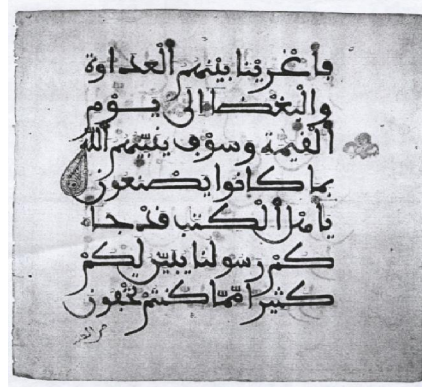 فأغرينا بينهم العداوة
والبغضا الى يوم
القيمة وسوف ينبيهم الله
بما كانوا يصنعون
يأهل الكتب قد جا
كم رسولنا يبين لكم
كثيرا مما كنتم تخفون